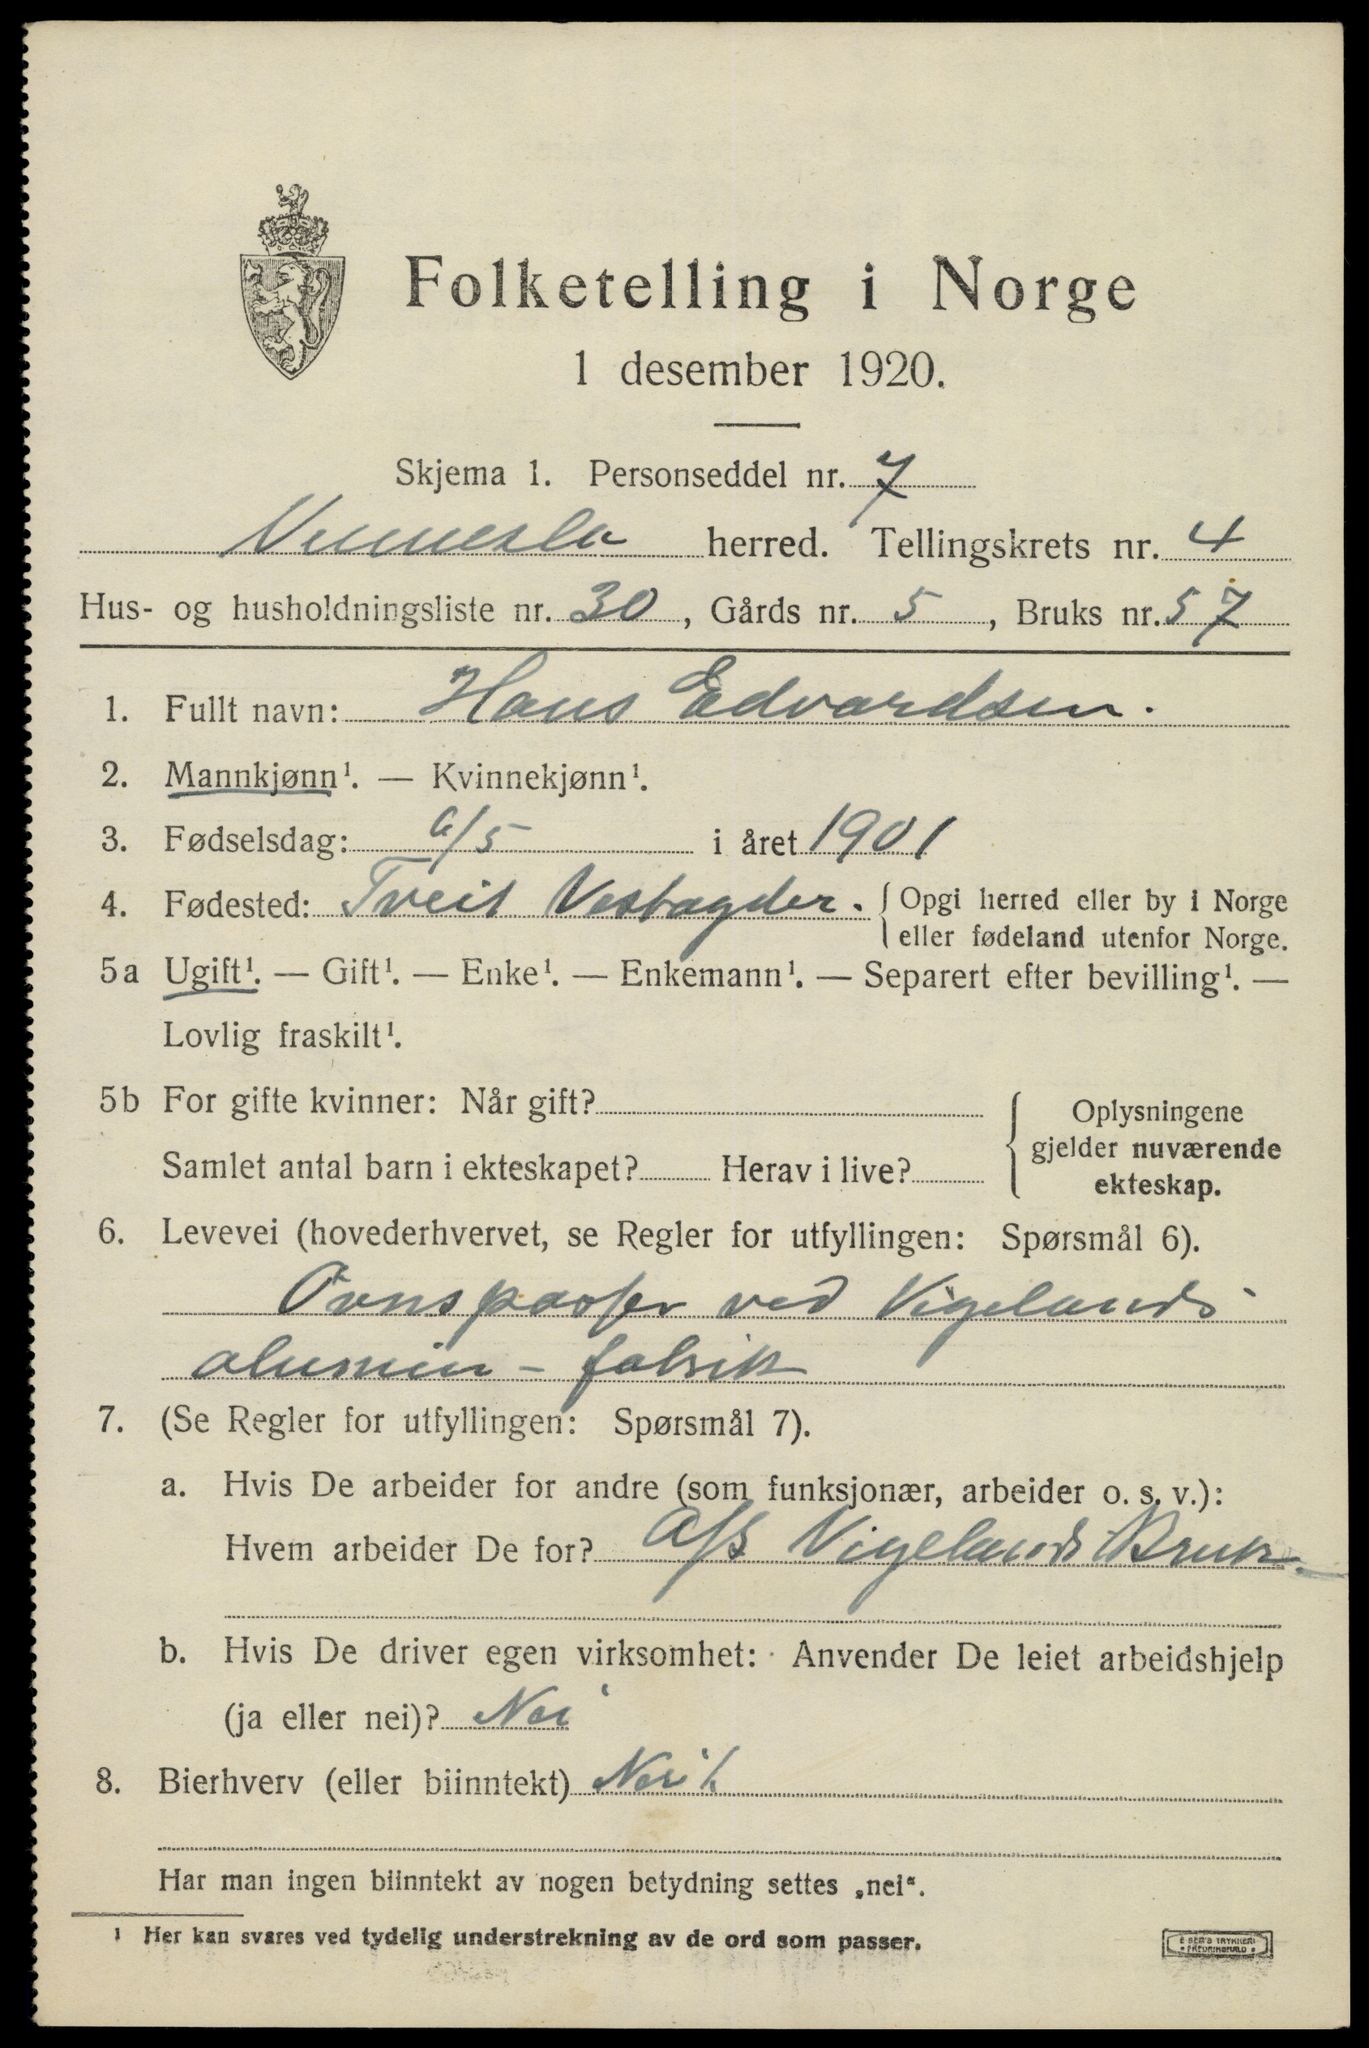 Folketelling i Norge
1 desember 1920.
Skjema 1. Personseddel nr. 7
Vennesla herred. Tellingskrets nr. 4
Hus- og husholdningsliste nr. 30, Gårds nr. 5, Bruks nr. 57
1. Fullt navn: Hans Edvardsen.
2. Mannkjønn¹. — Kvinnekjønn¹.
3. Fødselsdag: 6/5 i året 1901
4. Fødested: Tveit Vestagder. { Opgi herred eller by i Norge
eller fødeland utenfor Norge.
5a Ugift¹. — Gift¹. — Enke¹. — Enkemann¹. — Separert efter bevilling¹. —
Lovlig fraskilt¹.
5b For gifte kvinner: Når gift?
Samlet antal barn i ekteskapet? Herav i live?
Oplysningene
gjelder nuværende
ekteskap.
6. Levevei (hovederhvervet, se Regler for utfyllingen: Spørsmål 6).
Ovnspasser ved Vigelands
alumin-fabrik
7. (Se Regler for utfyllingen: Spørsmål 7).
a. Hvis De arbeider for andre (som funksjonær, arbeider o. s. v.):
Hvem arbeider De for? A/S Vigelands Bruk.
b. Hvis De driver egen virksomhet: Anvender De leiet arbeidshjelp
(ja eller nei)? Nei
8. Bierhverv (eller biinntekt) Nei!
Har man ingen biinntekt av nogen betydning settes „nei“.
¹ Her kan svares ved tydelig understrekning av de ord som passer.